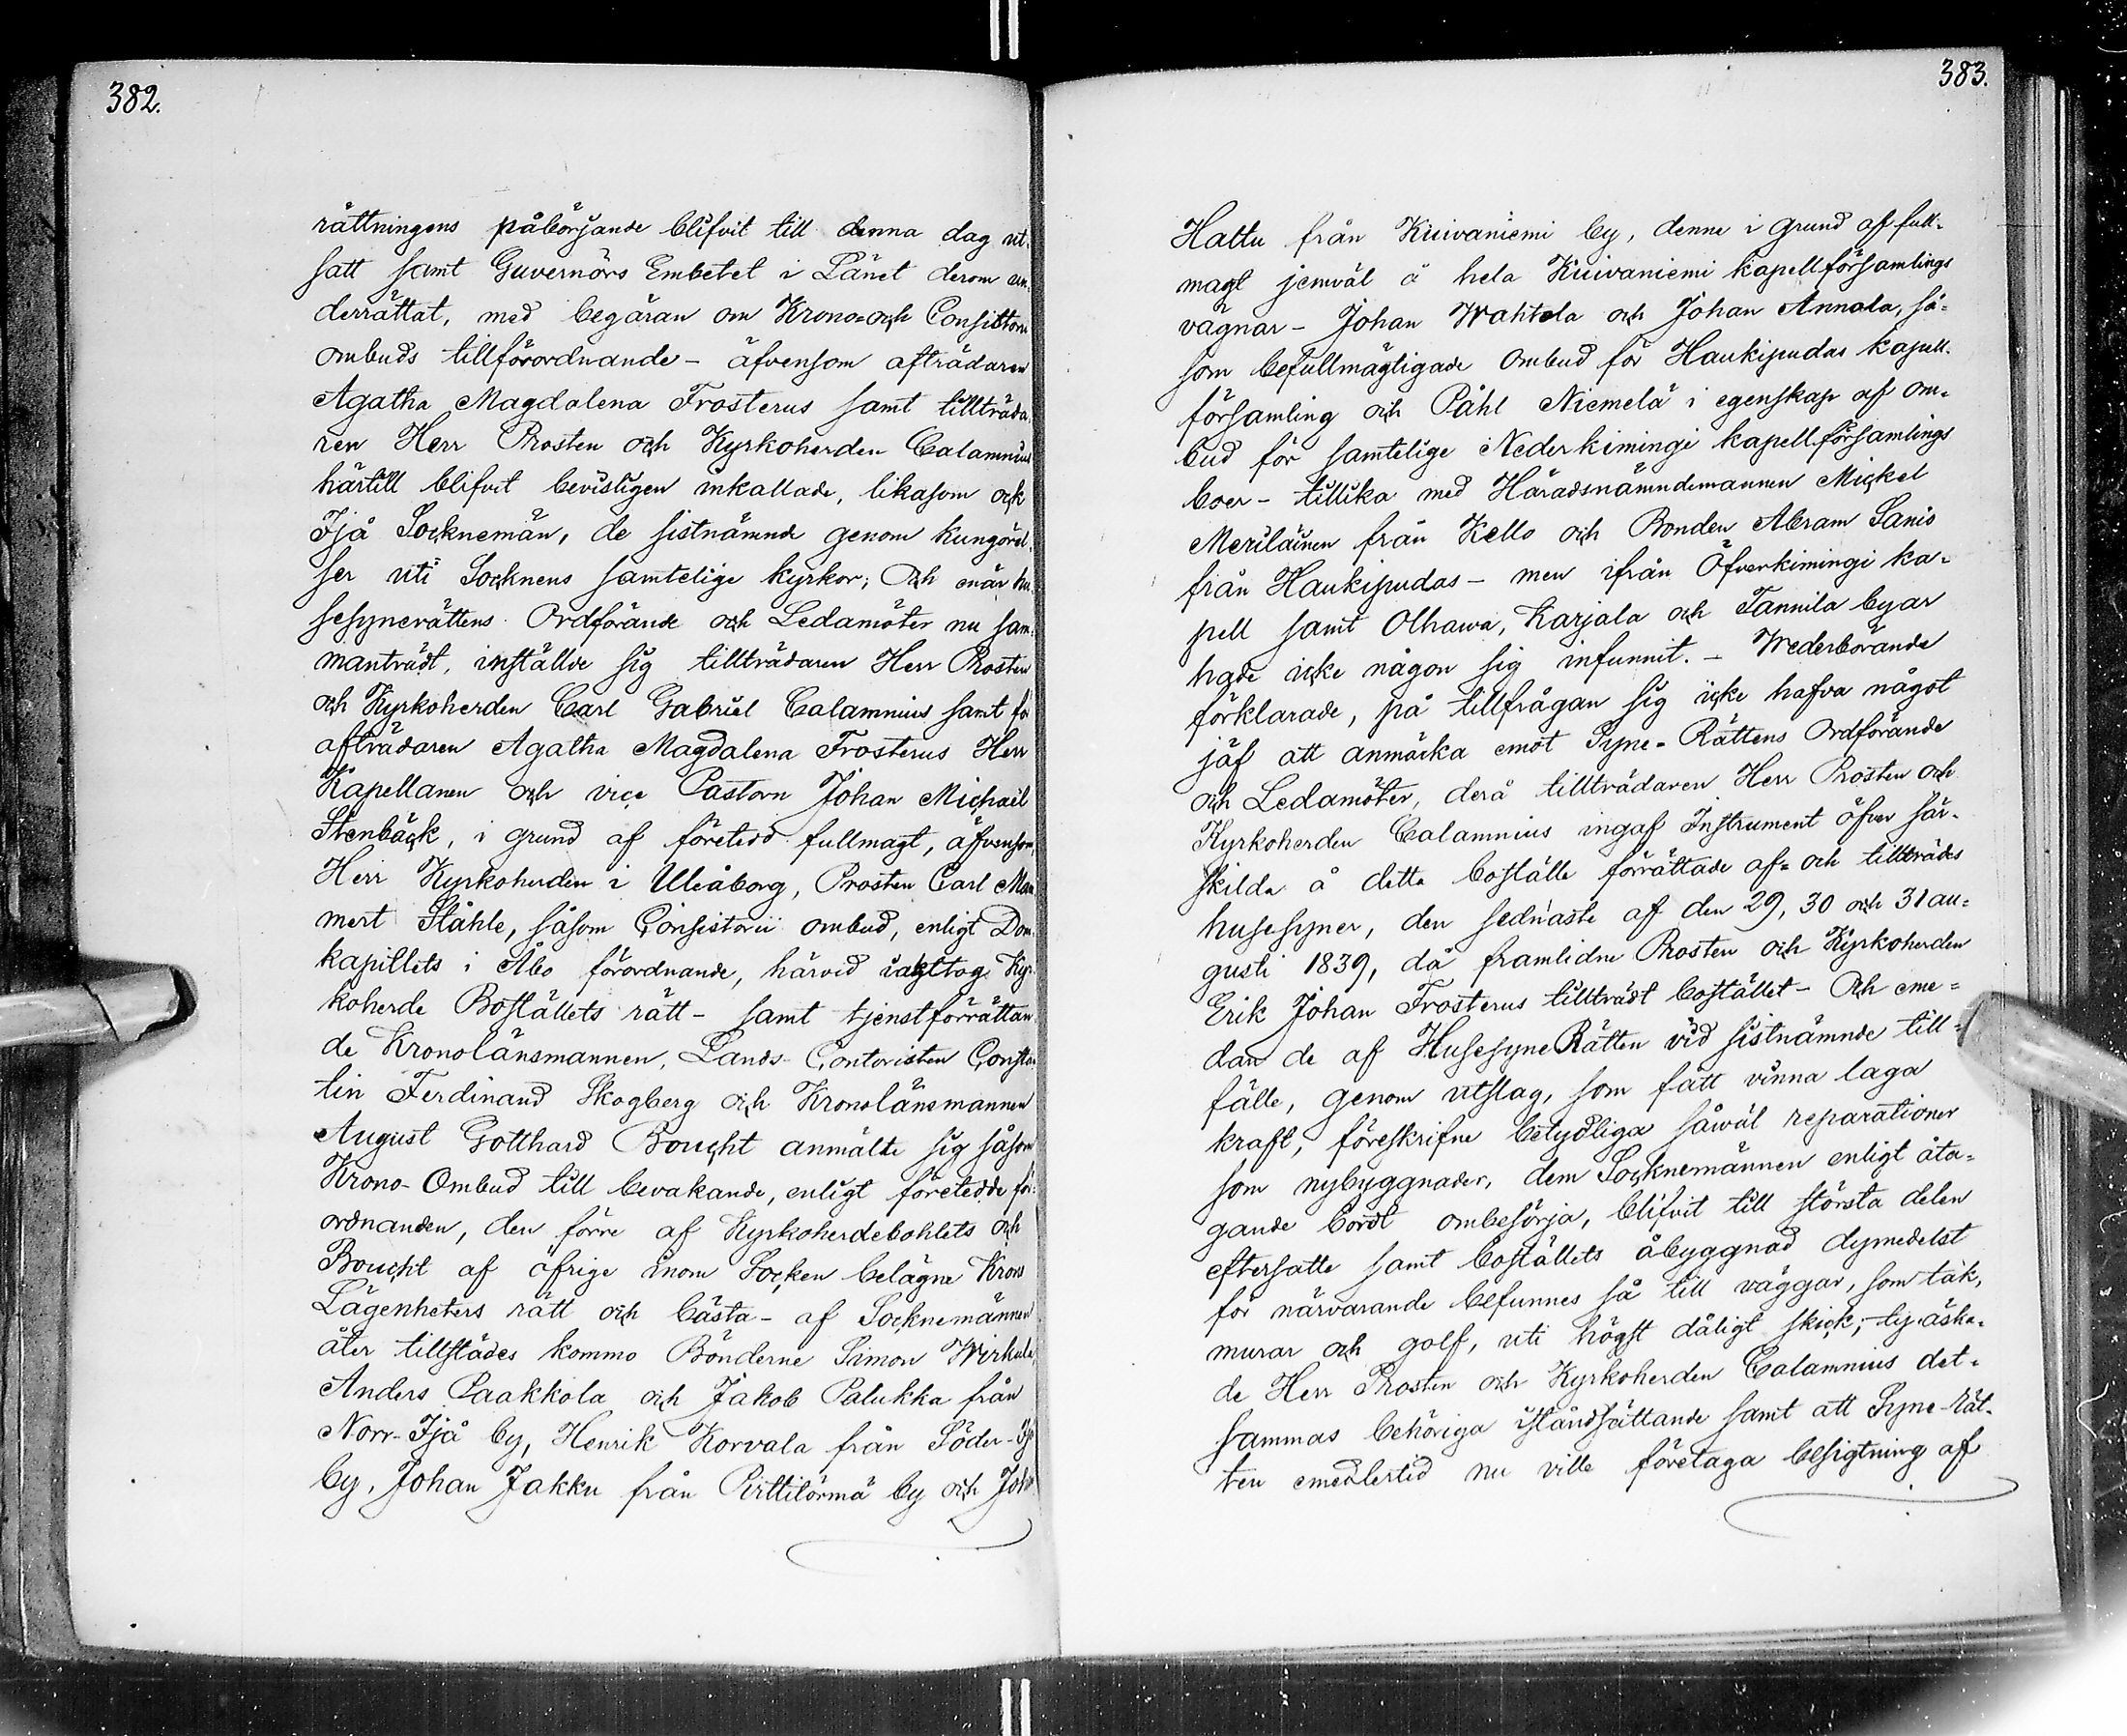 382.
rättningens påbörjande blifvit till denna dag ut-
satt samt Guvernörs Embetet i Länet derom un-
derrättat, med begäran om Krono- och Consistorii
ombuds tillförordnande - äfvensom afträdaren
Agatha Magdalena Frosterus samt tillträda-
ren Herr Prosten och Kyrkoherden Calamnius
härtill blifvit bevisligen inkallade, likasom ock
Ijå Socknemän, de sistnämnde genom kungörel-
ser uti Socknens samtelige kyrkor; Och enär hu-
sesynerättens Ordförande och Ledamöter nu sam-
manträdt, inställde sig tillträdaren Herr Prosten
och Kyrkoherden Carl Gabriel Calamnius samt för
afträdaren Agatha Magdalena Frosterus Herr
Kapellanen och vice Pastorn Johan Michael
Stenbäck, i grund af företedd fullmagt, äfvensom
Herr Kyrkoherden i Uleåborg, Prosten Carl Mem
mert Ståhle, såsom Consistorii ombud, enligt Dom-
kapitlets i Åbo förordnande, härvid iakttog Kyr-
koherde Boställets rätt - samt tjenstförrättan-
de Kronolänsmannen, Lands-Contoristen Constan
tin Ferdinand Skogberg och Kronolänsmannen
August Gotthard Boucht anmälte sig såsom
Krono-Ombud till bevakande, enligt företedde för-
ordnanden, den förre af Kyrkoherdebohlets och
Boucht af öfrige inom Socken belägne Krono
Lägenheters rätt och bästa - af Socknemännen
åter tillstädes kommo Bönderne Simon Wirkula,
Anders Paakkola och Jakob Palukka från
Norr-Ijå by, Henrik Korvala från Söder-Ijå
by, Johan Jakku från Pirttitörmä by och Johan
383.
Hattu från Kuivaniemi by, denne i grund af full-
magt jemväl å hela Kuivaniemi kapellförsamlings
vägnar - Johan Wahtola och Johan Annala, så-
som befullmägtigade Ombud för Haukipudas kapell-
församling och Påhl Niemelä i egenskap af om-
bud för samtelige Nederkimingi kapellförsamlings
boer - tillika med Häradsnämndemannen Mickel
Meriläinen från Kello och Bonden Abram Sanio
från Haukipudas - men ifrån Öfverkimingi ka-
pell samt Olhawa, Karjala och Tannila byar
hade icke någon sig infunnit. - Wederbörande
förklarade, på tillfrågan sig icke hafva något
jäf att anmärka emot Syne-Rättens Ordförande
och Ledamöter, derå tillträdaren Herr Prosten och
Kyrkoherden Calamnius ingaf Instrument öfver sär-
skilda å detta boställe förrättade af- och tillträdes
husesyner, den sednaste af den 29, 30 och 31 au-
gusti 1839, då framlidne Prosten och Kyrkoherden
Erik Johan Frosterus tillträdt bostället - Och eme-
dan de af HusesyneRätten vid sistnämnde till-
fälle, genom utslag, som fått vinna laga
kraft, föreskrifne betydliga såwäl reparationer
som nybyggnader, dem Socknemännen enligt åta-
gande bordt ombesörja, blifvit till största delen
eftersatte samt boställets åbyggnad dymedelst
för närvarande befunnes så till väggar, som tak,
murar och golf, uti högst dåligt skick; ty äska-
de Herr Prosten och Kyrkoherden Calamnius det-
sammas behöriga iståndsättande samt att Syne-Rät-
ten emedlertid nu ville företaga besigtning af